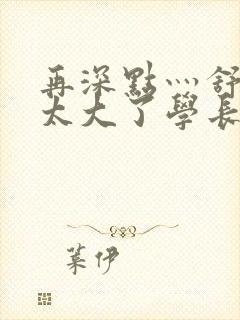 再深點灬舒
太大了學長
葉伊